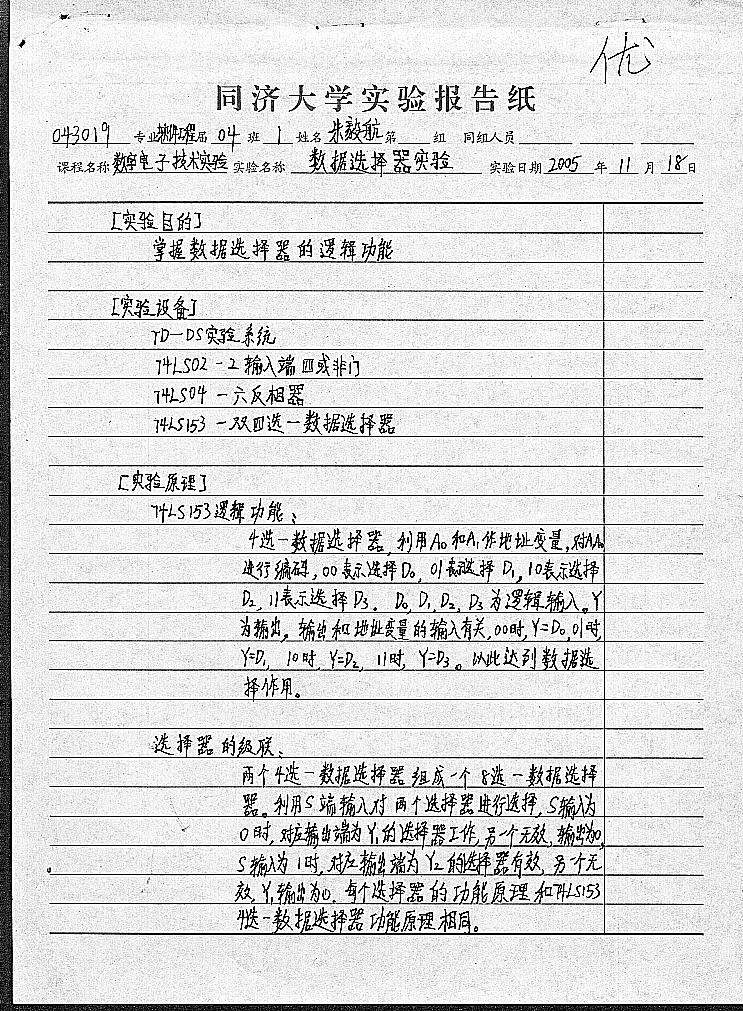 优
同济大学实验报告纸
043019 专业 软件工程 届 04 班 1 姓名 朱毅航 第 组 同组人员
课程名称 数字电子技术实验 实验名称 数据选择器实验 实验日期 2005 年 11 月 18 日
[实验目的]
掌握数据选择器的逻辑功能
[实验设备]
TD-DS实验系统
74LS02 - 2输入端四或非门
74LS04 - 六反相器
74LS153 - 双四选一数据选择器
[实验原理]
74LS153逻辑功能:
4选一数据选择器,利用A₀和A₁作地址变量,对A₁A₀
进行编码,00表示选择D₀,01表示选择D₁,10表示选择
D₂,11表示选择D₃。D₀,D₁,D₂,D₃为逻辑输入。Y
为输出。输出和地址变量的输入有关,00时,Y=D₀,01时,
Y=D₁, 10时,Y=D₂, 11时,Y=D₃。以此达到数据选
择作用。
选择器的级联:
两个4选一数据选择器组成一个8选一数据选择
器。利用S端输入对两个选择器进行选择,S输入为
0时,对应输出端为Y₁的选择器工作,另一个无效,输出为0,
S输入为1时,对应输出端为Y₂的选择器有效,另一个无
效,Y₁输出为0。每个选择器的功能原理和74LS153
4选一数据选择器功能原理相同。